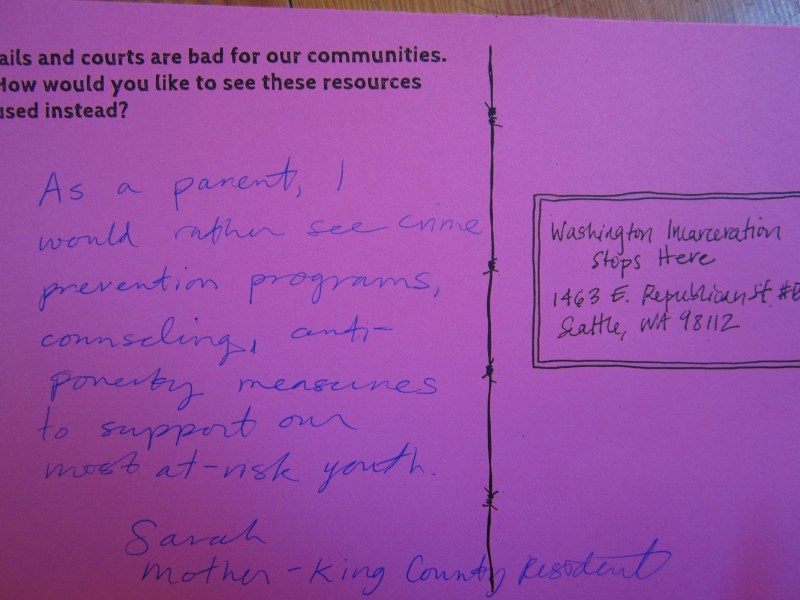 ails and courts are bad for our communities.
How would you like to see these resources
used instead?
As a parent, I
would rather see crime
prevention programs,
counseling, anti-
poverty measures
to support our
most at-risk youth.
Sarah
Mother - King County Resident
Washington Incarceration
Stops Here
1463 E. Republican St. #B
Seattle, WA 98112